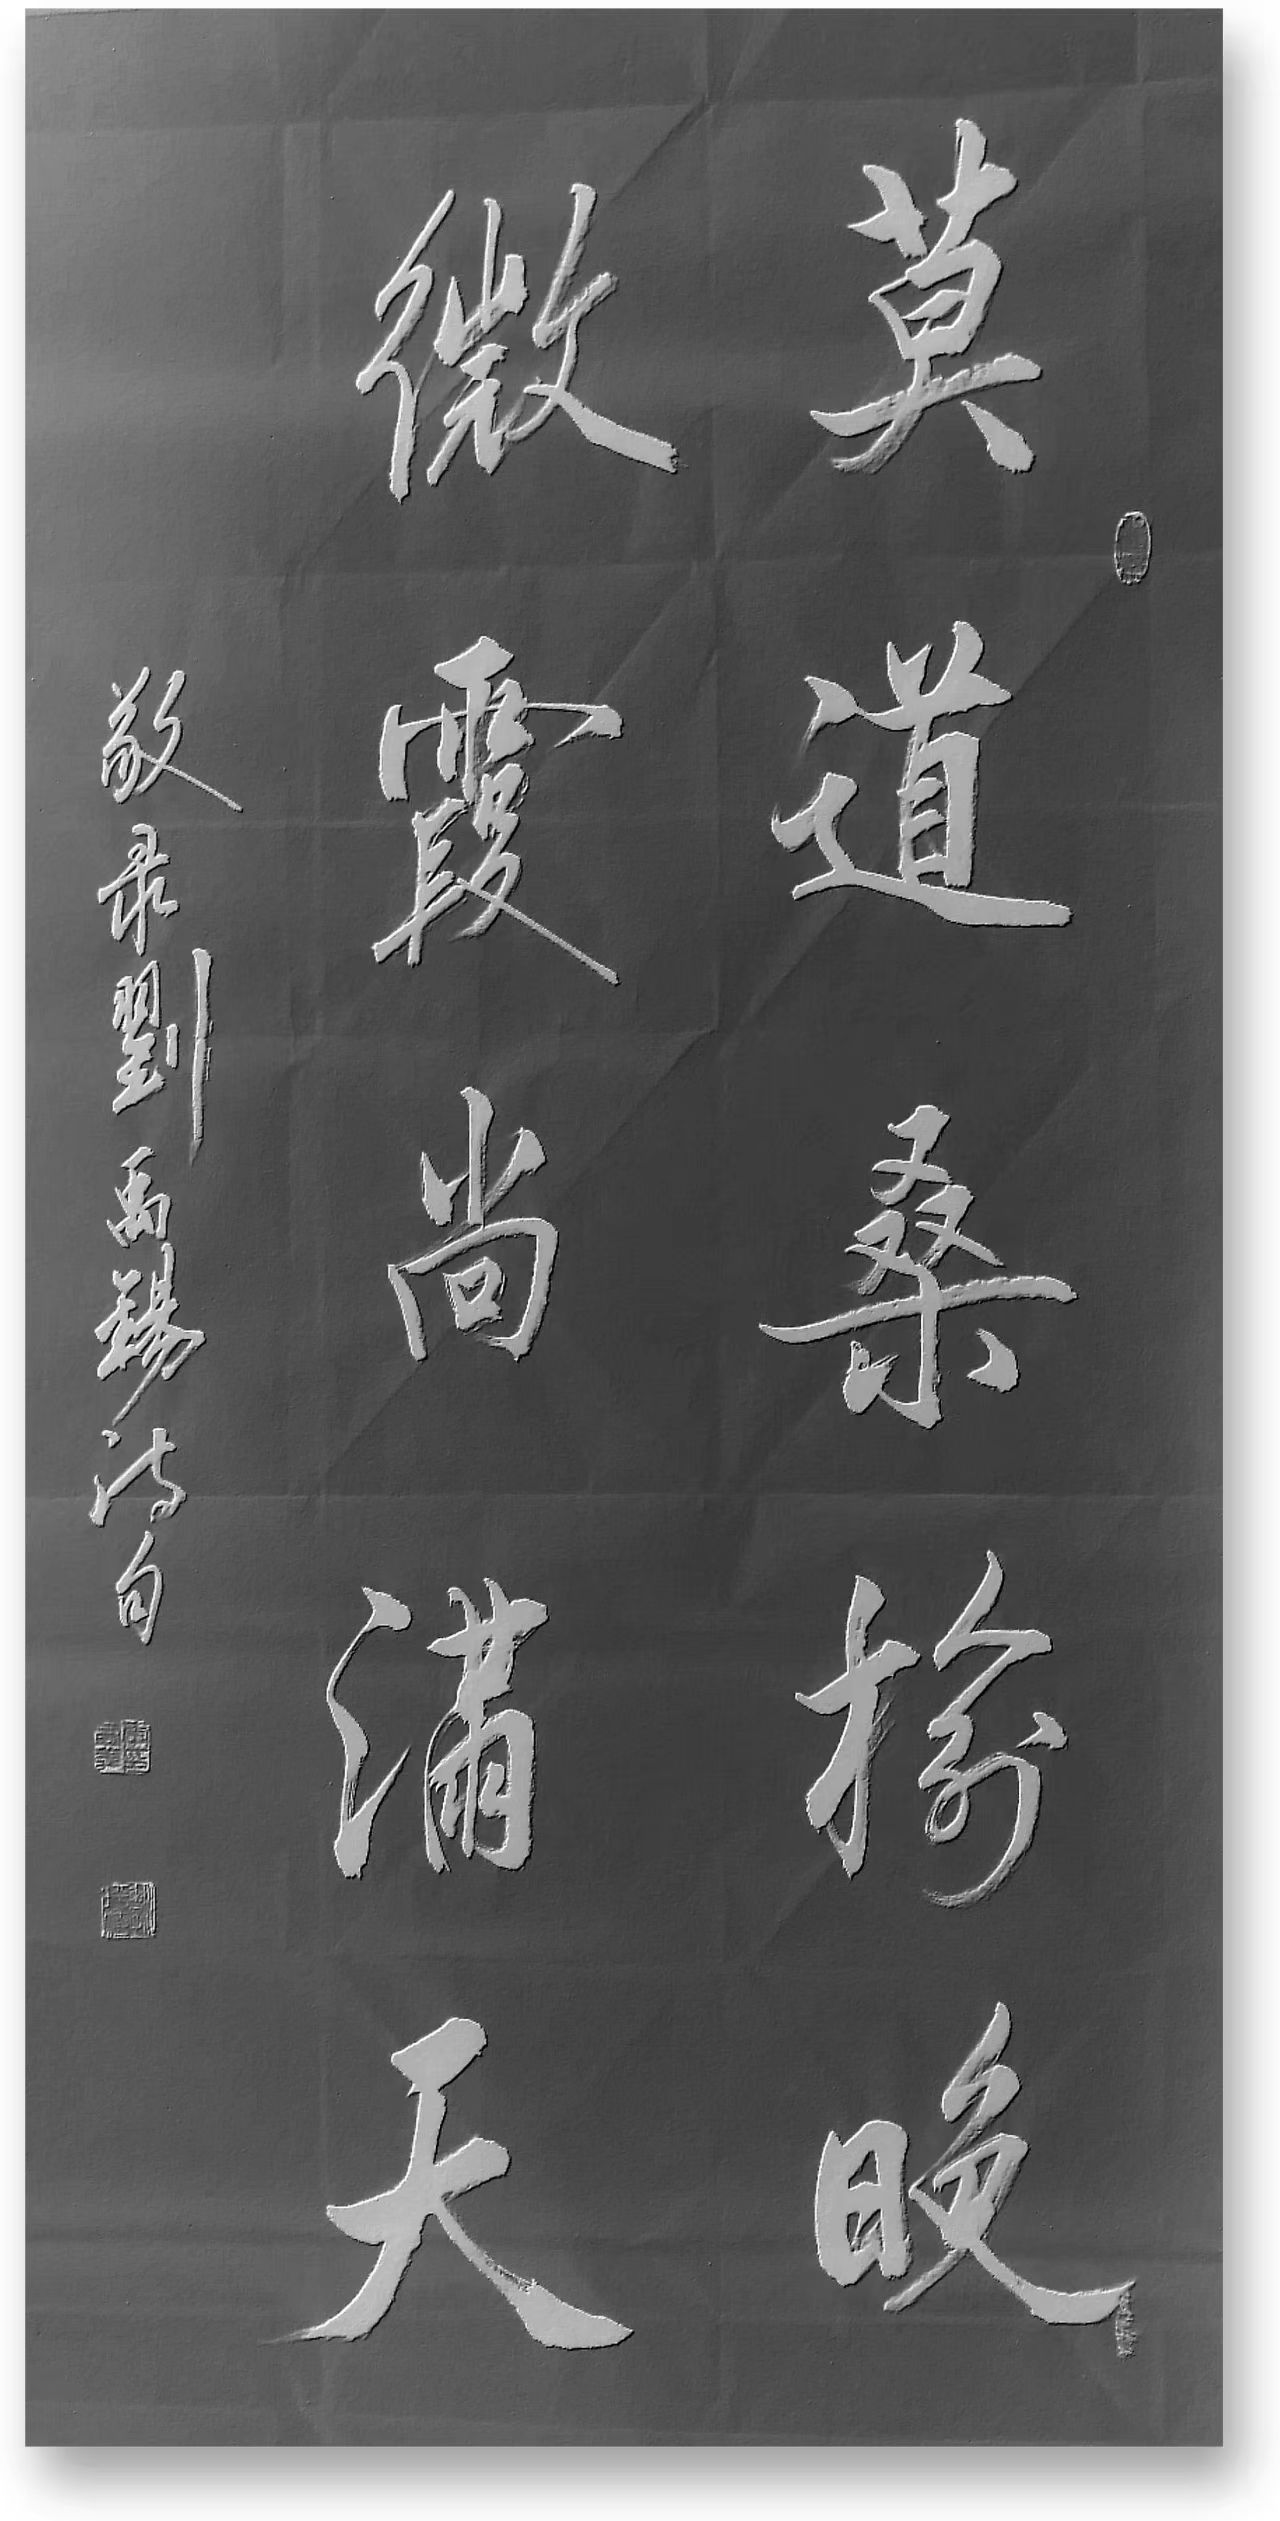 莫道桑榆晚
微霞尚满天
敬录劉禹锡诗句